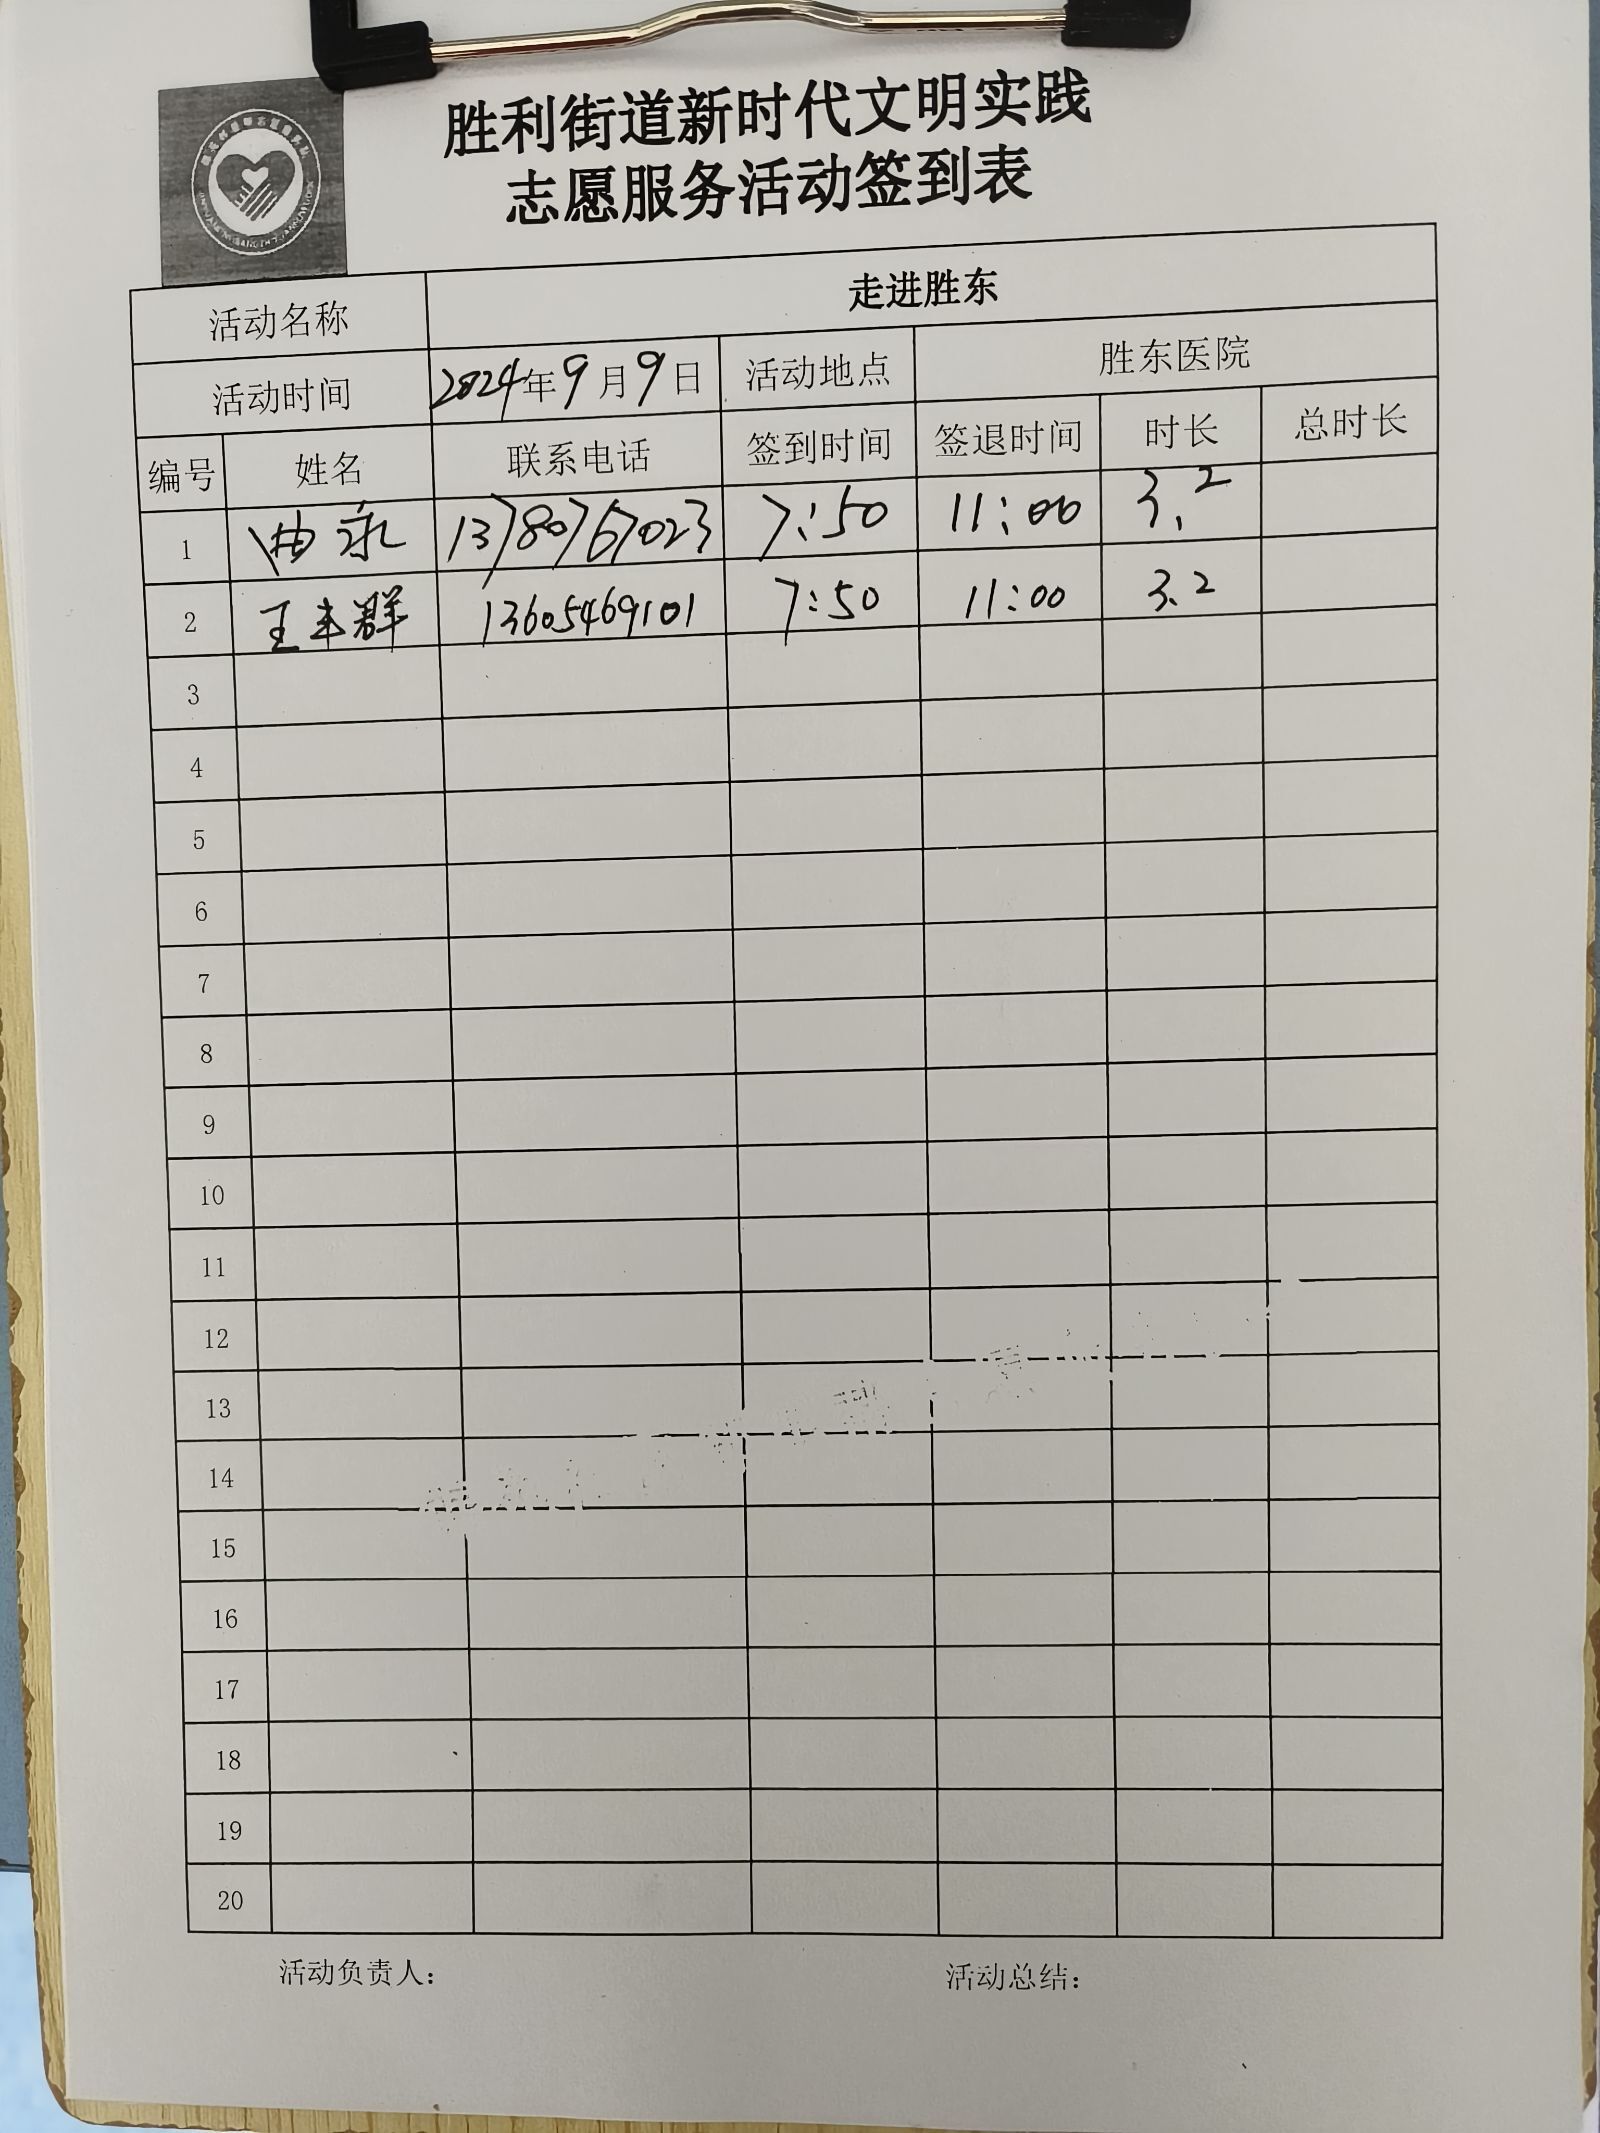 胜利街道新时代文明实践
志愿服务活动签到表
活动名称 走进胜东
活动时间 2024年9月9日 活动地点 胜东医院
编号 姓名 联系电话 签到时间 签退时间 时长 总时长
1 曲永 13780767023 7:50 11:00 3.2
2 王丰群 13605469101 7:50 11:00 3.2
3
4
5
6
7
8
9
10
11
12
13
14
15
16
17
18
19
20
活动负责人: 活动总结: